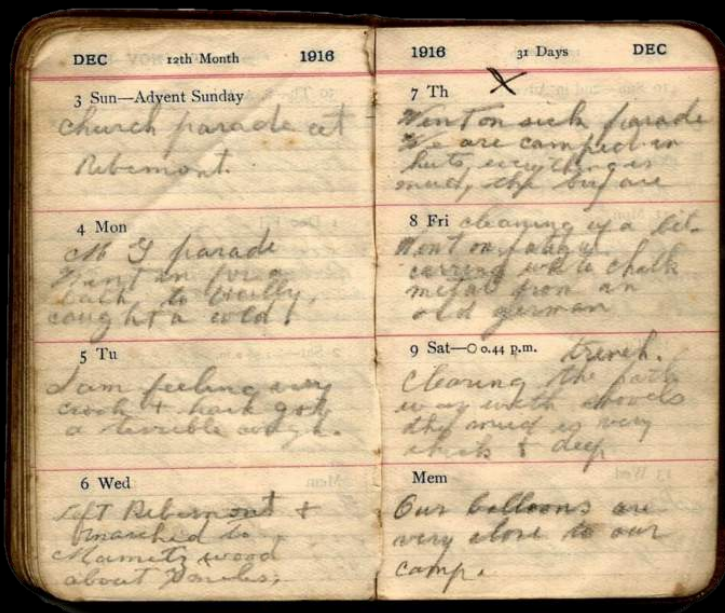 DEC 12th Month 1916
3 Sun—Advent Sunday
Church parade at
Ribemont.
4 Mon
M G parade
Went in for a
bath to Heilly,
caught a cold!
5 Tu
I am feeling very
crook & have got
a terrible cough.
6 Wed
Left Ribemont &
marched to
Mametz wood
about miles,
1916 31 Days DEC
7 Th X
Went on sick parade
We are camped in
huts, everything is
mud, the boys are
8 Fri cleaning up a bit.
Went on fatigue
carring white chalk
metal from an
old german
9 Sat—O 0.44 p.m. trench.
Clearing the path
way with shovels
the mud is very
thick & deep
Mem
Our balloons are
very close to our
camp.